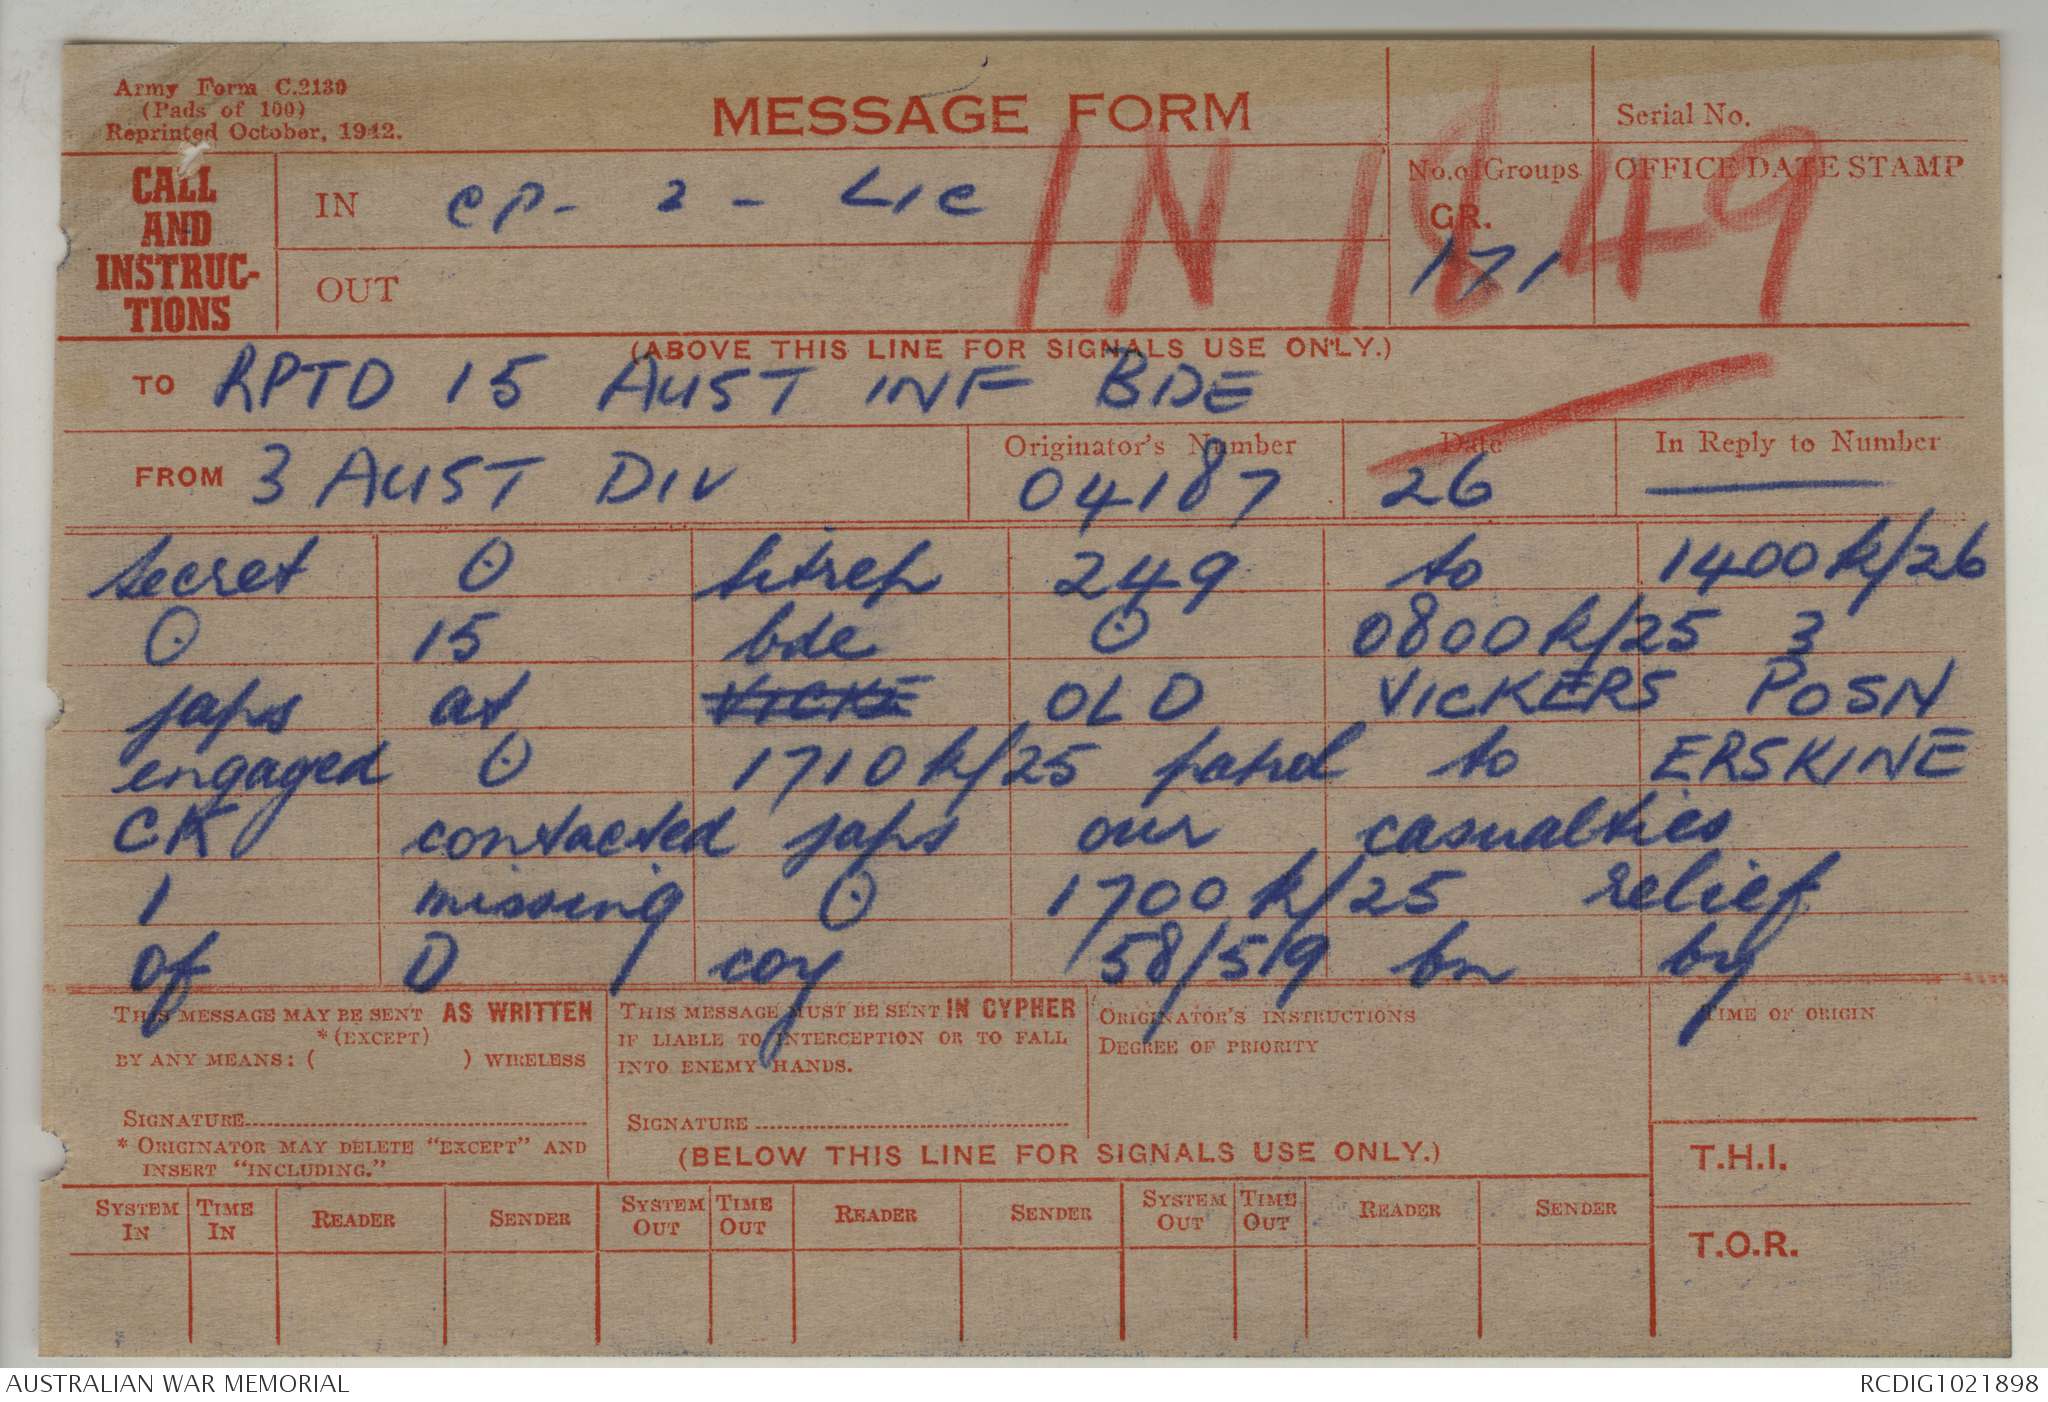 Army Form C.2130
(Pads of 100)
Reprinted October, 1942.
MESSAGE FORM
Serial No.
CALL
AND
INSTRUC-
TIONS
IN CP - 2 - LIC
OUT
No. of Groups
GR.
171
OFFICE DATE STAMP
IN 1849
(ABOVE THIS LINE FOR SIGNALS USE ONLY.)
TO RPTD 15 AUST INF BDE
FROM 3 AUST DIV
Originator's Number
04187
Date
26
In Reply to Number
secret 0 sitrep 249 to 1400K/26
0 15 bde 0 0800K/25 3
japs at VICKE OLD VICKERS POSN
engaged 0 1710K/25 patrol to ERSKINE
CK contacted japs our casualties
1 missing 0 1700K/25 relief
of D coy 58/59 bn by
THIS MESSAGE MAY BE SENT AS WRITTEN
*(EXCEPT)
BY ANY MEANS: ( ) WIRELESS
SIGNATURE
* ORIGINATOR MAY DELETE "EXCEPT" AND
INSERT "INCLUDING."
THIS MESSAGE MUST BE SENT IN CYPHER
IF LIABLE TO INTERCEPTION OR TO FALL
INTO ENEMY HANDS.
SIGNATURE
ORIGINATOR'S INSTRUCTIONS
DEGREE OF PRIORITY
TIME OF ORIGIN
(BELOW THIS LINE FOR SIGNALS USE ONLY.)
T.H.I.
T.O.R.
SYSTEM IN TIME IN READER SENDER SYSTEM OUT TIME OUT READER SENDER SYSTEM OUT TIME OUT READER SENDER
AUSTRALIAN WAR MEMORIAL
RCDIG1021898